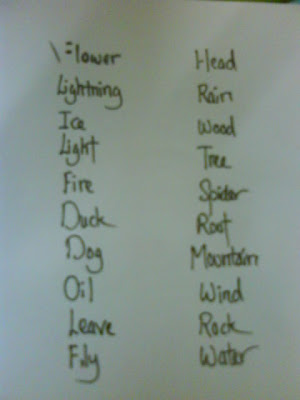 Flower
Lightning
Ice
Light
Fire
Duck
Dog
Oil
Leave
Head
Rain
Wood
Tree
Spider
Root
Mountain
Wind
Rock
Water